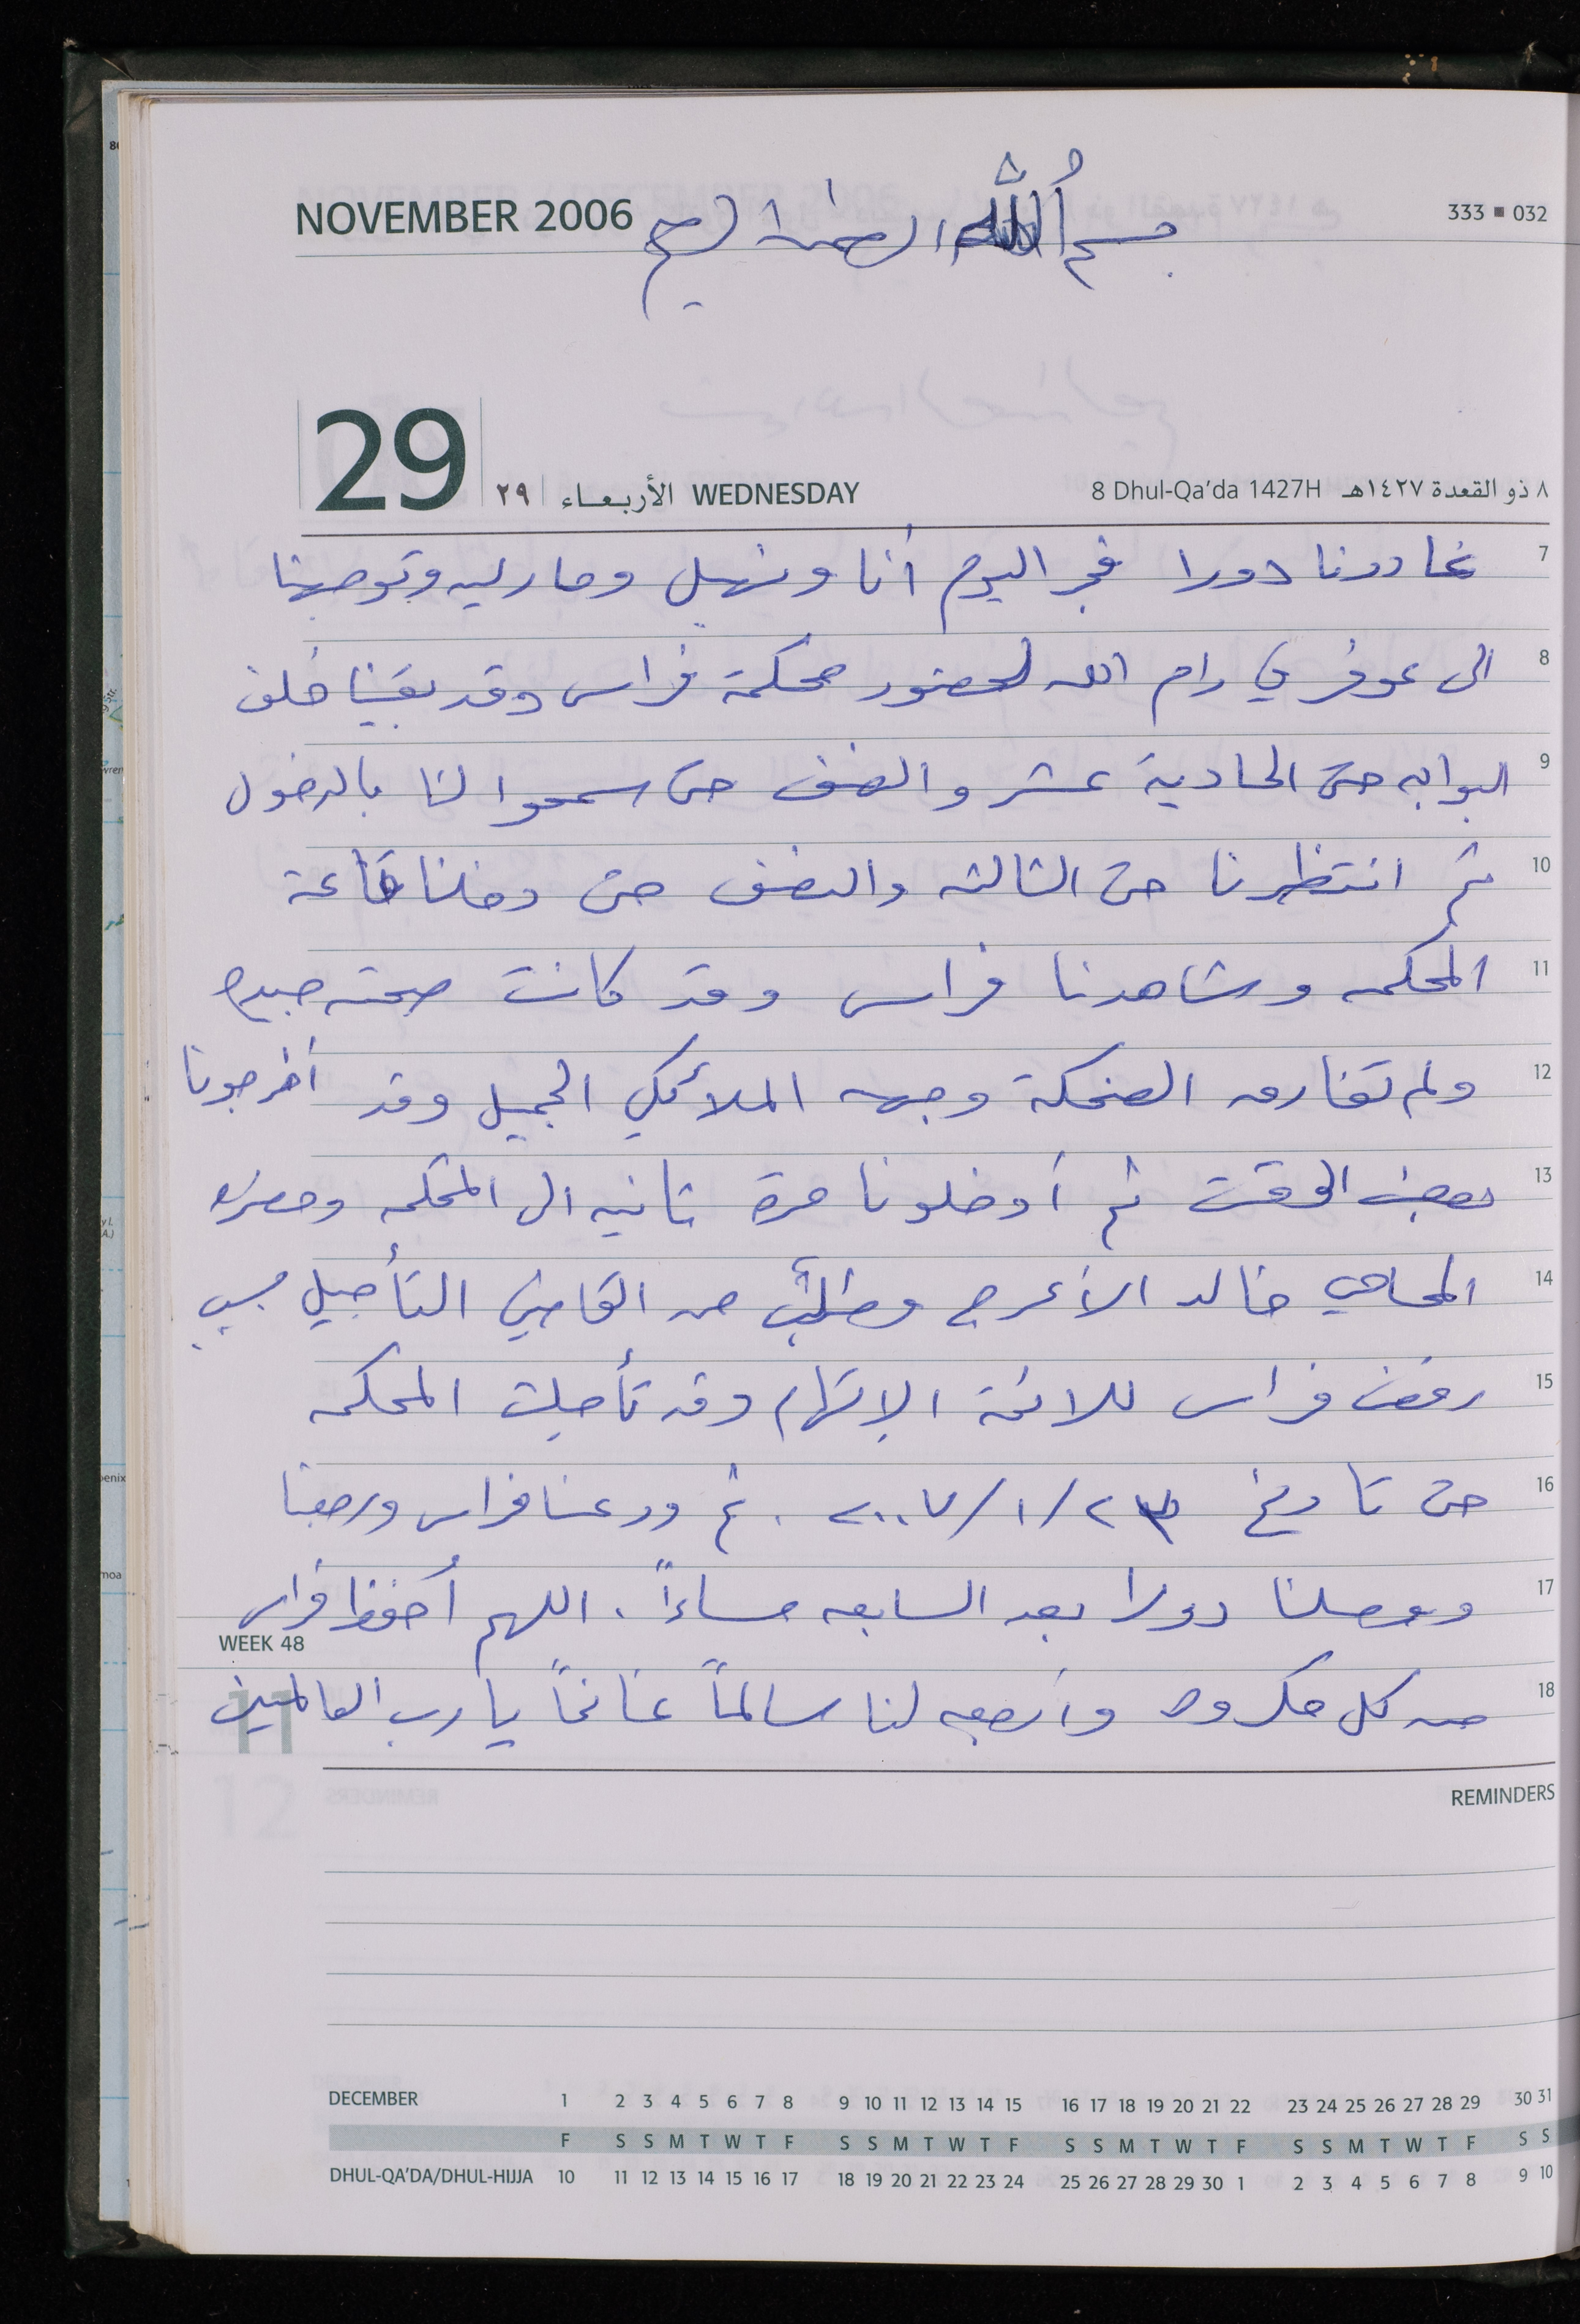 NOVEMBER 2006 بسم الله الرحمن الرحيم 333 ■ 032
29 ٢٩ الأربعاء WEDNESDAY 8 Dhul-Qa'da 1427H ٨ ذو القعدة ١٤٢٧هـ
7 غادرنا دورا فجر اليوم أنا ونهيل وماريه وتوجهنا
8 الى عوفر في رام الله لحضور محكمة فراس وقد بقينا خلف
9 البوابه حتى الحادية عشر والنصف حتى سمحوا لنا بالدخول
10 ثم انتظرنا حتى الثالثه والنصف حتى دخلنا قاعة
11 المحكمه وشاهدنا فراس وقد كانت صحته جيده
12 ولم تفارق الضحكة وجهه الملائكي الجميل وقد أخرجونا
13 بعض الوقت ثم أدخلونا مرة ثانيه الى المحكمه وحضر
14 المحامي خالد الأعرج وطلب من القاضي التأجيل بسبب
15 رفض فراس للائحة الإتهام وقد تأجلت المحكمه
16 حتى تاريخ ٢٣/١/٢٠٠٧ . ثم ودعنا فراس ورجعنا
17 ووصلنا دورا بعد السابعه مساءاً . اللهم أحفظ فراس
WEEK 48
18 من كل مكروه وأرجعه لنا سالماً غانماً يا رب العالمين
11
REMINDERS
DECEMBER 1 2 3 4 5 6 7 8 9 10 11 12 13 14 15 16 17 18 19 20 21 22 23 24 25 26 27 28 29 30 31
F S S M T W T F S S M T W T F S S M T W T F S S M T W T F S S
DHUL-QA'DA/DHUL-HIJJA 10 11 12 13 14 15 16 17 18 19 20 21 22 23 24 25 26 27 28 29 30 1 2 3 4 5 6 7 8 9 10